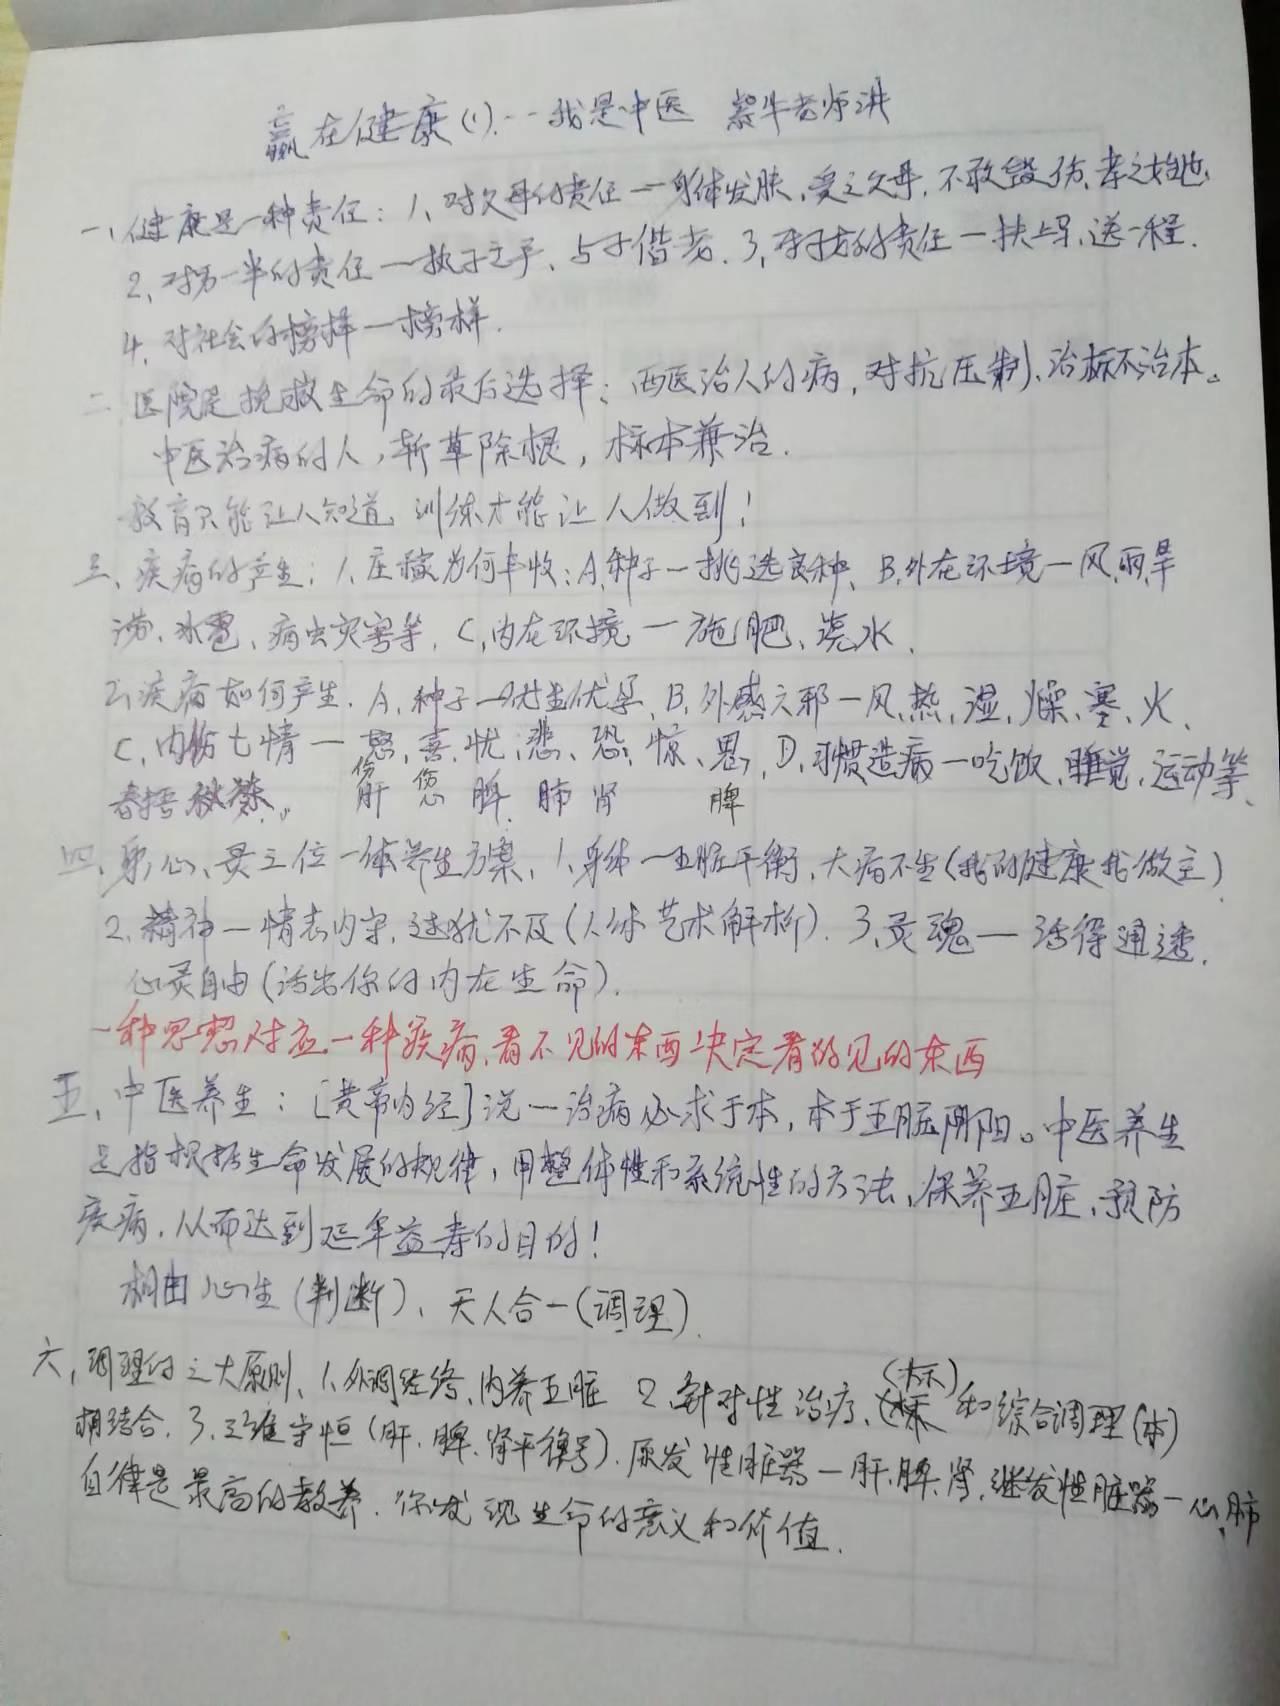 赢在健康(1)--我是中医 紫牛老师讲
一、健康是一种责任：1、对父母的责任—身体发肤，受之父母，不敢毁伤，孝之始也。
2、对另一半的责任—执子之手，与子偕老。3、对子女的责任—扶上马，送一程。
4、对社会的榜样—榜样。
二、医院是挽救生命的最后选择：西医治人的病，对抗压制，治标不治本。
中医治病的人，斩草除根，标本兼治。
教育只能让人知道，训练才能让人做到！
三、疾病的产生，1、庄稼为何丰收：A、种子—挑选良种、B、外在环境—风、雨、旱
涝、冰雹、病虫灾害等，C、内在环境—施肥、浇水。
2、疾病如何产生，A、种子—优生优孕、B、外感六邪—风、热、湿、燥、寒、火、
C、内伤七情—怒、喜、忧、悲、恐、惊、思、D、习惯造病—吃饭、睡觉、运动等、
春捂秋冻。 伤肝 伤心 脾 肺 肾 脾
四、身、心、灵三位一体养生方案，1、身体—五脏平衡，大病不生(我的健康我做主)
2、精神—情志内守，过犹不及(人体艺术解析)。3、灵魂—活得通透，
心灵自由(活出你的内在生命)。
一种思想对应一种疾病，看不见的东西决定看得见的东西
五、中医养生：[黄帝内经]说—治病必求于本，本于五脏阴阳。中医养生
是指根据生命发展的规律，用整体性和系统性的方法，保养五脏，预防
疾病，从而达到延年益寿的目的！
相由心生(判断)、天人合一(调理)。
六、调理的三大原则、1、外调经络，内养五脏 2、针对性治疗(标)和综合调理(本)
相结合，3、三维守恒(肝、脾、肾平衡)。原发性脏器—肝、脾、肾，继发性脏器—心、肺
自律是最高的教养，你发现生命的意义和价值。